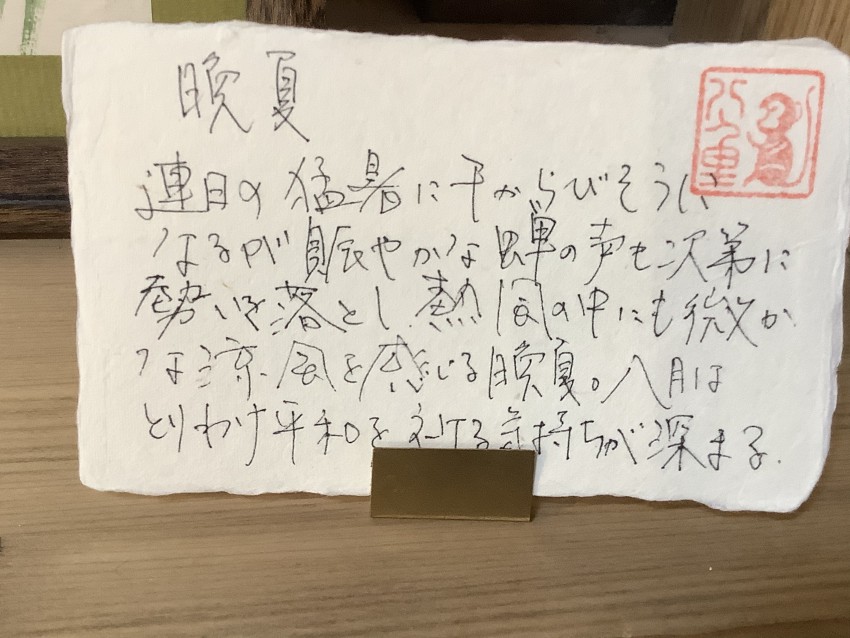 晩夏
連日の猛暑に干からびそうに
なるが賑やかな蝉の声も次第に
勢いを落とし熱風の中にも微か
な涼風を感じる晩夏。八月は
とりわけ平和を祈る気持ちが深まる.